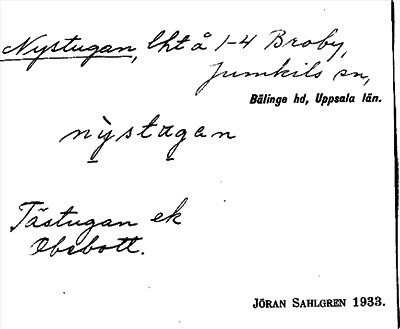 Nystugan, lht å 1-4 Broby,
Jumkils sn,
Bälinge hd, Uppsala län.
nỳstagan
Tästugan ek
Obsbott.
JÖRAN SAHLGREN 1933.